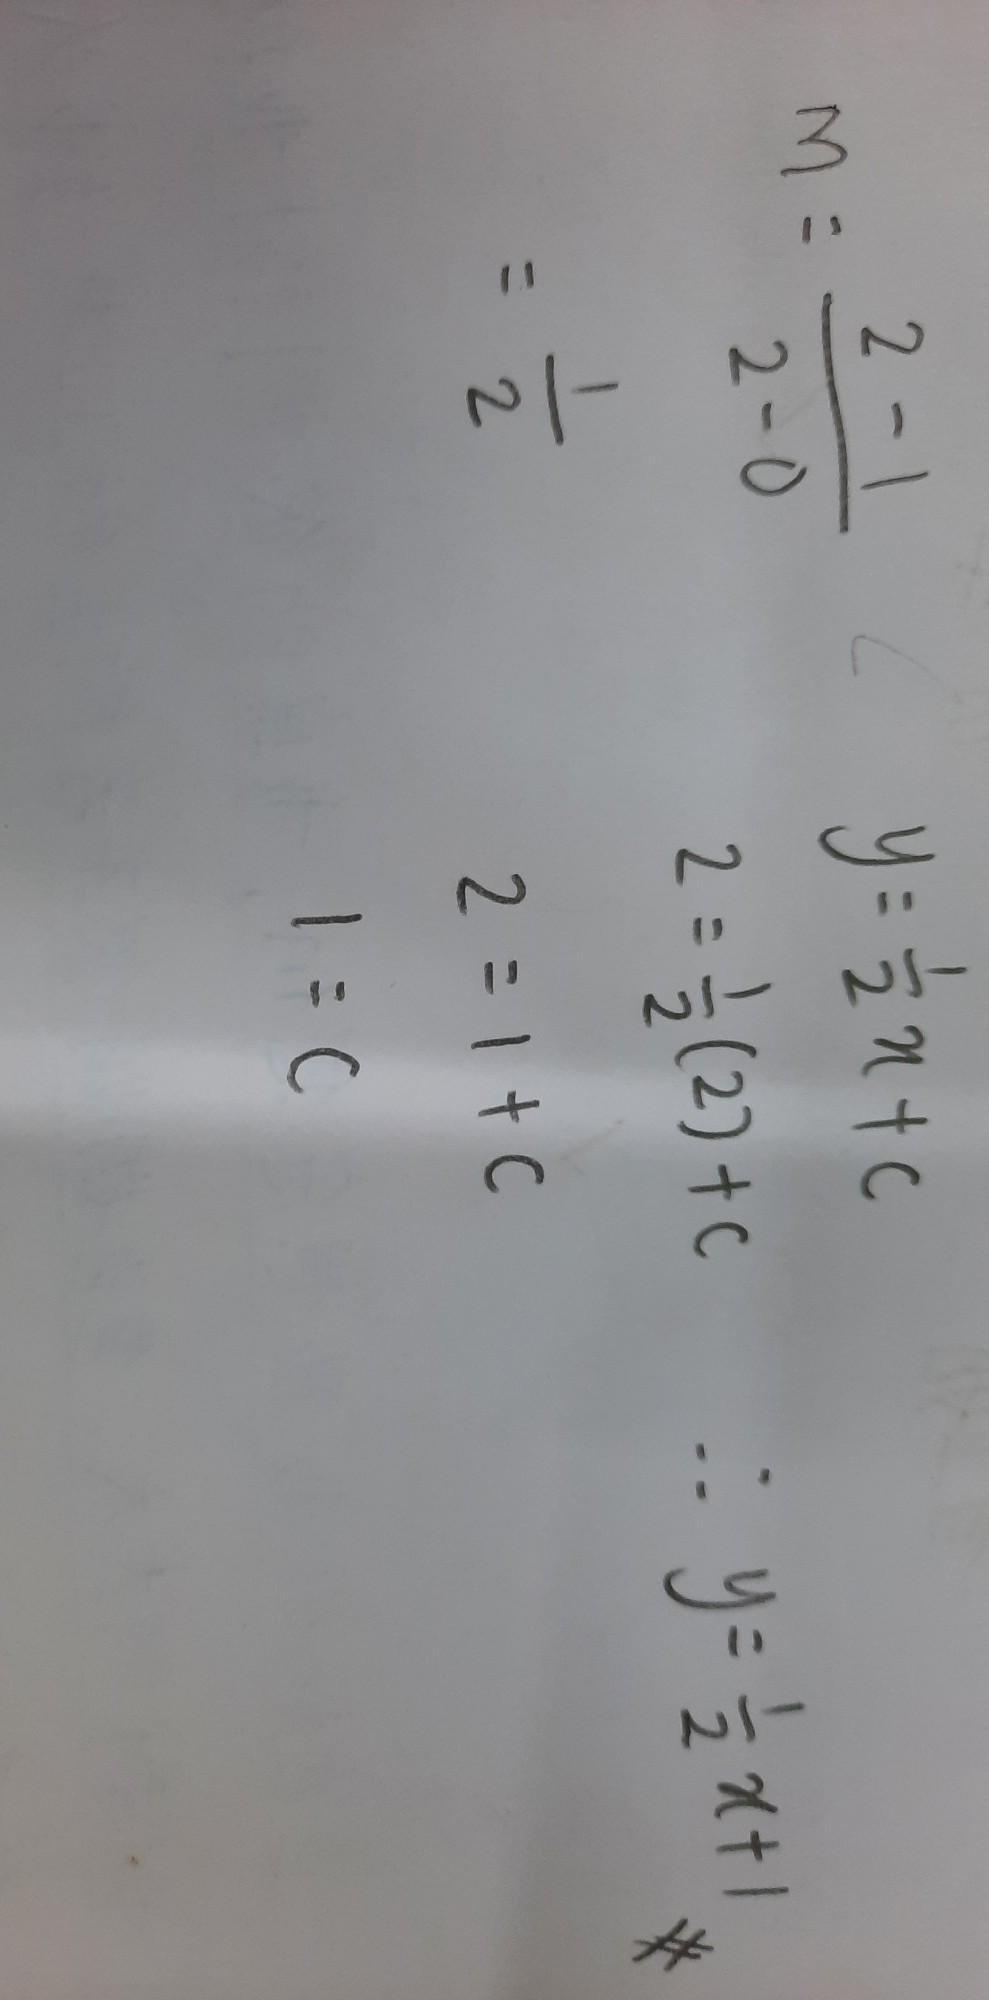 m = \frac{2-1}{2-0}
= \frac{1}{2}
y = \frac{1}{2}x + c
2 = \frac{1}{2}(2) + c
2 = 1 + c
1 = c
∴ y = \frac{1}{2}x + 1 #